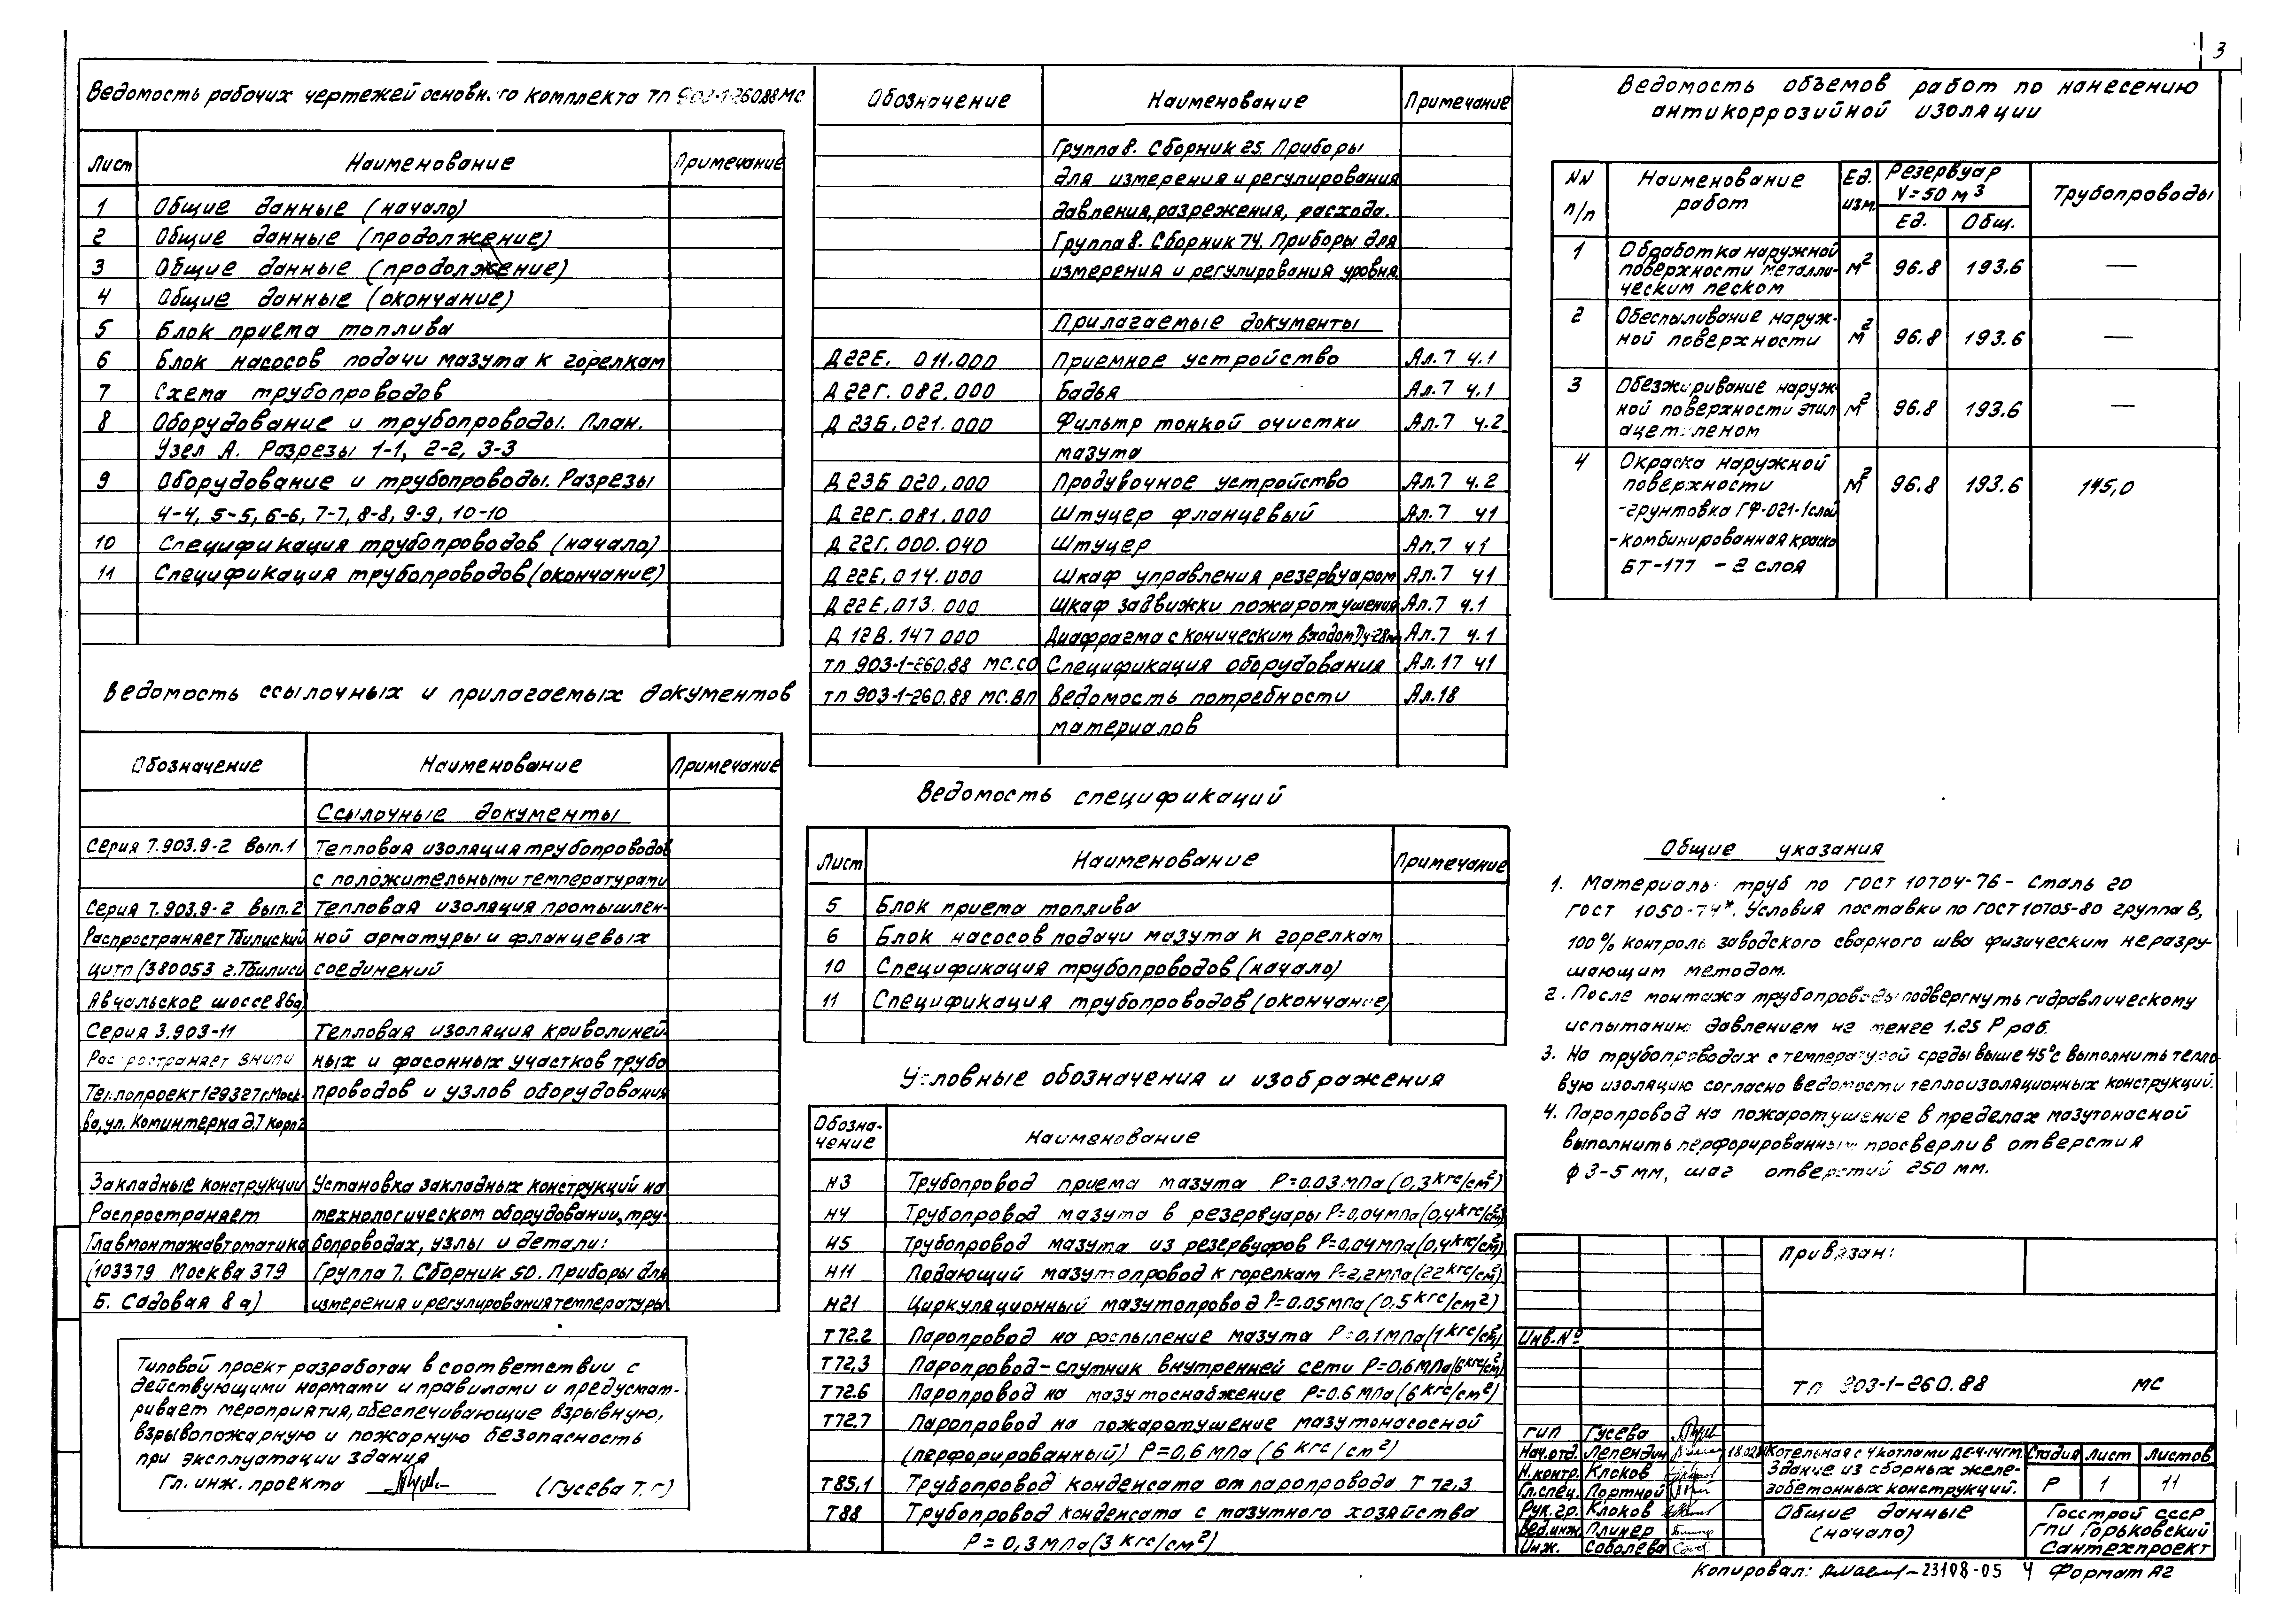 3
Ведомость рабочих чертежей основного комплекта ТП 903-1-260.88 МС
Лист Наименование Примечание
1 Общие данные (начало)
2 Общие данные (продолжение)
3 Общие данные (продолжение)
4 Общие данные (окончание)
5 Блок приема топлива
6 Блок насосов подачи мазута к горелкам
7 Схема трубопроводов
8 Оборудование и трубопроводы. План.
Узел А. Разрезы 1-1, 2-2, 3-3
9 Оборудование и трубопроводы. Разрезы
4-4, 5-5, 6-6, 7-7, 8-8, 9-9, 10-10
10 Спецификация трубопроводов (начало)
11 Спецификация трубопроводов (окончание)
Ведомость ссылочных и прилагаемых документов
Обозначение Наименование Примечание
Ссылочные документы
Серия 7.903.9-2 Вып.1 Тепловая изоляция трубопроводов
с положительными температурами
Серия 7.903.9-2 Вып.2 Тепловая изоляция промышлен-
Распространяет Тбилиский ной арматуры и фланцевых
ЦИТП (380053 г. Тбилиси соединений
Авчальское шоссе 86а)
Серия 3.903-11 Тепловая изоляция криволиней-
Распространяет ВНИПИ ных и фасонных участков трубо
Теплопроект 129327 г. Моск- проводов и узлов оборудования
ва, ул. Коминтерна д.7 корп 2
Закладные конструкции Установка закладных конструкций на
Распространяет технологическом оборудовании, тру-
Главмонтажавтоматика бопроводах, узлы и детали:
(103379 Москва 379 Группа 7. Сборник 50. Приборы для
Б. Садовая 8 а) измерения и регулирования температуры
Типовой проект разработан в соответствии с
действующими нормами и правилами и предусмат-
ривает мероприятия, обеспечивающие взрывную,
взрывопожарную и пожарную безопасность
при эксплуатации здания
Гл. инж. проекта (Гусева Т.Г)
Обозначение Наименование Примечание
Группа 8. Сборник 25. Приборы
для измерения и регулирования
давления, разрежения, расхода.
Группа 8. Сборник 74. Приборы для
измерения и регулирования уровня.
Прилагаемые документы
Д 22Е. 011.000 Приемное устройство Ал.7 ч.1
Д 22Г. 082.000 Бадья Ал.7 ч.1
Д 23Б.021.000 Фильтр тонкой очистки Ал.7 ч.2
мазута
Д 23Б 020.000 Продувочное устройство Ал.7 ч.2
Д 22Г.081.000 Штуцер фланцевый Ал.7 ч1
Д 22Г.000.040 Штуцер Ал.7 ч1
Д 22Е.014.000 Шкаф управления резервуаром Ал.7 ч1
Д 22Е.013.000 Шкаф задвижки пожаротушения Ал.7 ч.1
Д 12В.147 000 Диафрагма с коническим входом Ду-28мм Ал.7 ч.1
ТП 903-1-260.88 МС.СО Спецификация оборудования Ал.17 ч1
ТП 903-1-260.88 МС.ВП Ведомость потребности Ал.18
материалов
Ведомость спецификаций
Лист Наименование Примечание
5 Блок приема топлива
6 Блок насосов подачи мазута к горелкам
10 Спецификация трубопроводов (начало)
11 Спецификация трубопроводов (окончание)
Условные обозначения и изображения
Обозна-
чение Наименование
Н3 Трубопровод приема мазута Р=0.03МПа (0,3 кгс/см²)
Н4 Трубопровод мазута в резервуары Р=0,04МПа (0,4 кгс/см²)
Н5 Трубопровод мазута из резервуаров Р=0,04МПа (0,4 кгс/см²)
Н11 Подающий мазутопровод к горелкам Р=2,2МПа (22 кгс/см²)
Н21 Циркуляционный мазутопровод Р=0.05МПа (0,5 кгс/см²)
Т72.2 Паропровод на распыление мазута Р=0,1МПа (1 кгс/см²)
Т72.3 Паропровод-спутник внутренней сети Р=0,6МПа (6 кгс/см²)
Т72.6 Паропровод на мазутоснабжение Р=0.6 МПа (6 кгс/см²)
Т72.7 Паропровод на пожаротушение мазутонасосной
(перфорированный) Р=0,6 МПа (6 кгс/см²)
Т85.1 Трубопровод конденсата от паропровода Т 72.3
Т88 Трубопровод конденсата с мазутного хозяйства
Р=0,3 МПа (3 кгс/см²)
Ведомость объемов работ по нанесению
антикоррозийной изоляции
NN п/п Наименование работ Ед. изм. Резервуар V=50 м³ Трубопроводы
Ед. Общ.
1 Обработка наружной
поверхности металли- м² 96.8 193.6 —
ческим песком
2 Обеспыливание наруж-
ной поверхности м² 96.8 193.6 —
3 Обезжиривание наруж-
ной поверхности этил- м² 96.8 193.6 —
ацетиленом
4 Окраска наружной
поверхности м² 96.8 193.6 145,0
-грунтовка ГФ-021-1слой
-комбинированная краска
БТ-177 - 2 слоя
Общие указания
1. Материалы труб по ГОСТ 10704-76 - Сталь 20
ГОСТ 1050-74*. Условия поставки по ГОСТ 10705-80 группа В,
100% контроль заводского сварного шва физическим неразру-
шающим методом.
2. После монтажа трубопроводы подвергнуть гидравлическому
испытанию давлением не менее 1.25 Р раб.
3. На трубопроводах с температурой среды выше 45°с выполнить тепло-
вую изоляцию согласно ведомости теплоизоляционных конструкций.
4. Паропровод на пожаротушение в пределах мазутонасной
выполнить перфорированным просверлив отверстия
ф 3-5 мм, шаг отверстий 250 мм.
Привязан:
Инв.№
ТП 903-1-260.88 МС
ГИП Гусева
Нач.отд. Лепендин
Н.контр. Клоков
Гл.спец. Портной
Рук.гр. Клоков
Вед.инж. Плинер
Инж. Соболева
Котельная с 4 котлами ДЕ-4-14ГМ.
Здание из сборных желе-
зобетонных конструкций.
Стадия Лист Листов
Р 1 11
Общие данные
(начало)
Госстрой СССР
ГПИ Горьковский
Сантехпроект
Копировал: 23108-05 4 Формат А2